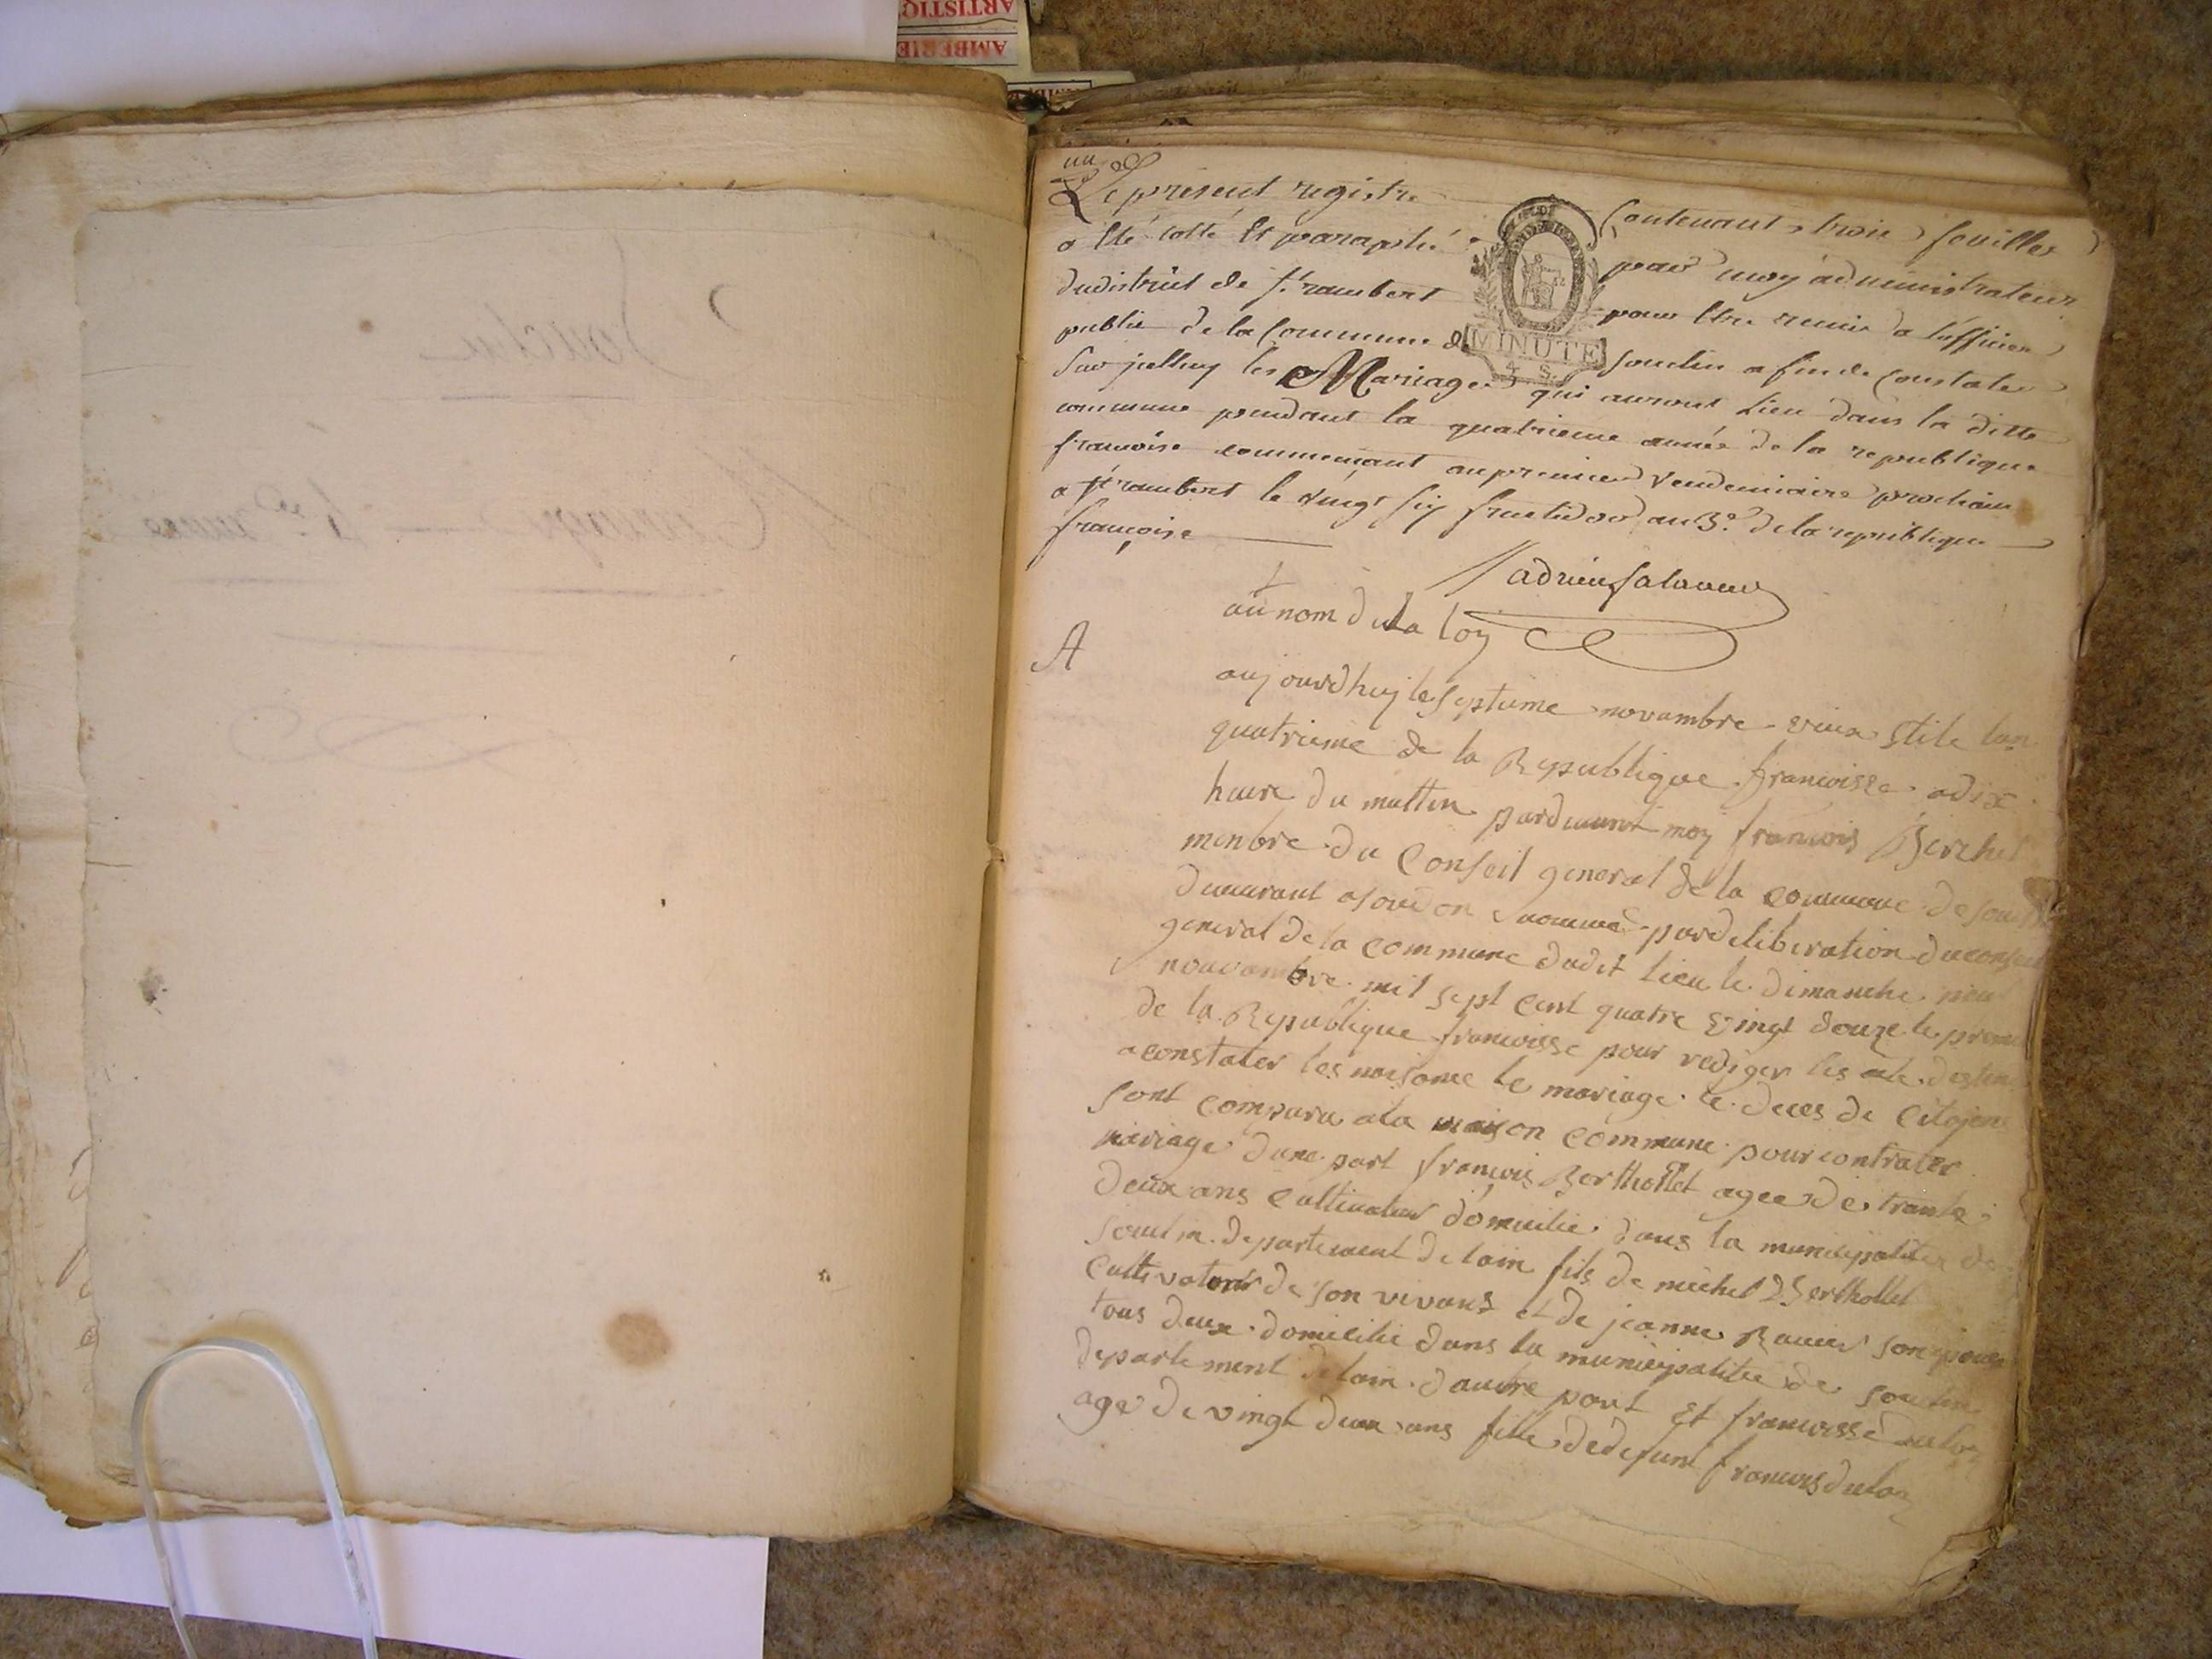 ARTISTIQ
AMBERIE
Souclin
Mariages 4e. année
un
Le présent registre contenant trois feuilles
a été cotté et paraphé par moy administrateur
du district de St. rambert pour être remis a l'officier
public de la Commune de souclin afin de constater
sur jcelluy les Mariages qui auront Lieu dans la ditte
commune pendant la quatrieme année de la republique
francoise commençant au premier vendemiaire prochain
a St rambert le vingt six fructidor an 3e. de la republique
françoise
MINUTE
4 S.
adrien salavuard
au nom de la loy
A
aujourdhuy le septieme novambre vieux stile lan
quatrieme de la Republique francoisse a dix
heure du mattin pardevant moy francois Berthet
menbre du Conseil general de la commune de sou
demurant a soudon nommé par deliberation du conseil
general de la commune dudit lieu le dimanche
novambre mil sept cent quatre vingt douze le premi
de la Republique francoisse pour rediger les acte destin
a constater les naisance le mariage te deces de Citojens
sont comparu a la maison commune pour contrater
mariage dune part francois Berthollet agee de trante
deux ans Cultivateur domicilie dans la municipalitee de
soucl in departement de lain fils de michel Berthollet
Cultivateur de son vivant et de jeanne Ravier son epouse
tous deux domicilie dans la municipalitee de souclin
departement de lain dautre part Et francoisse
age de vingt deux ans fille de defunt francois